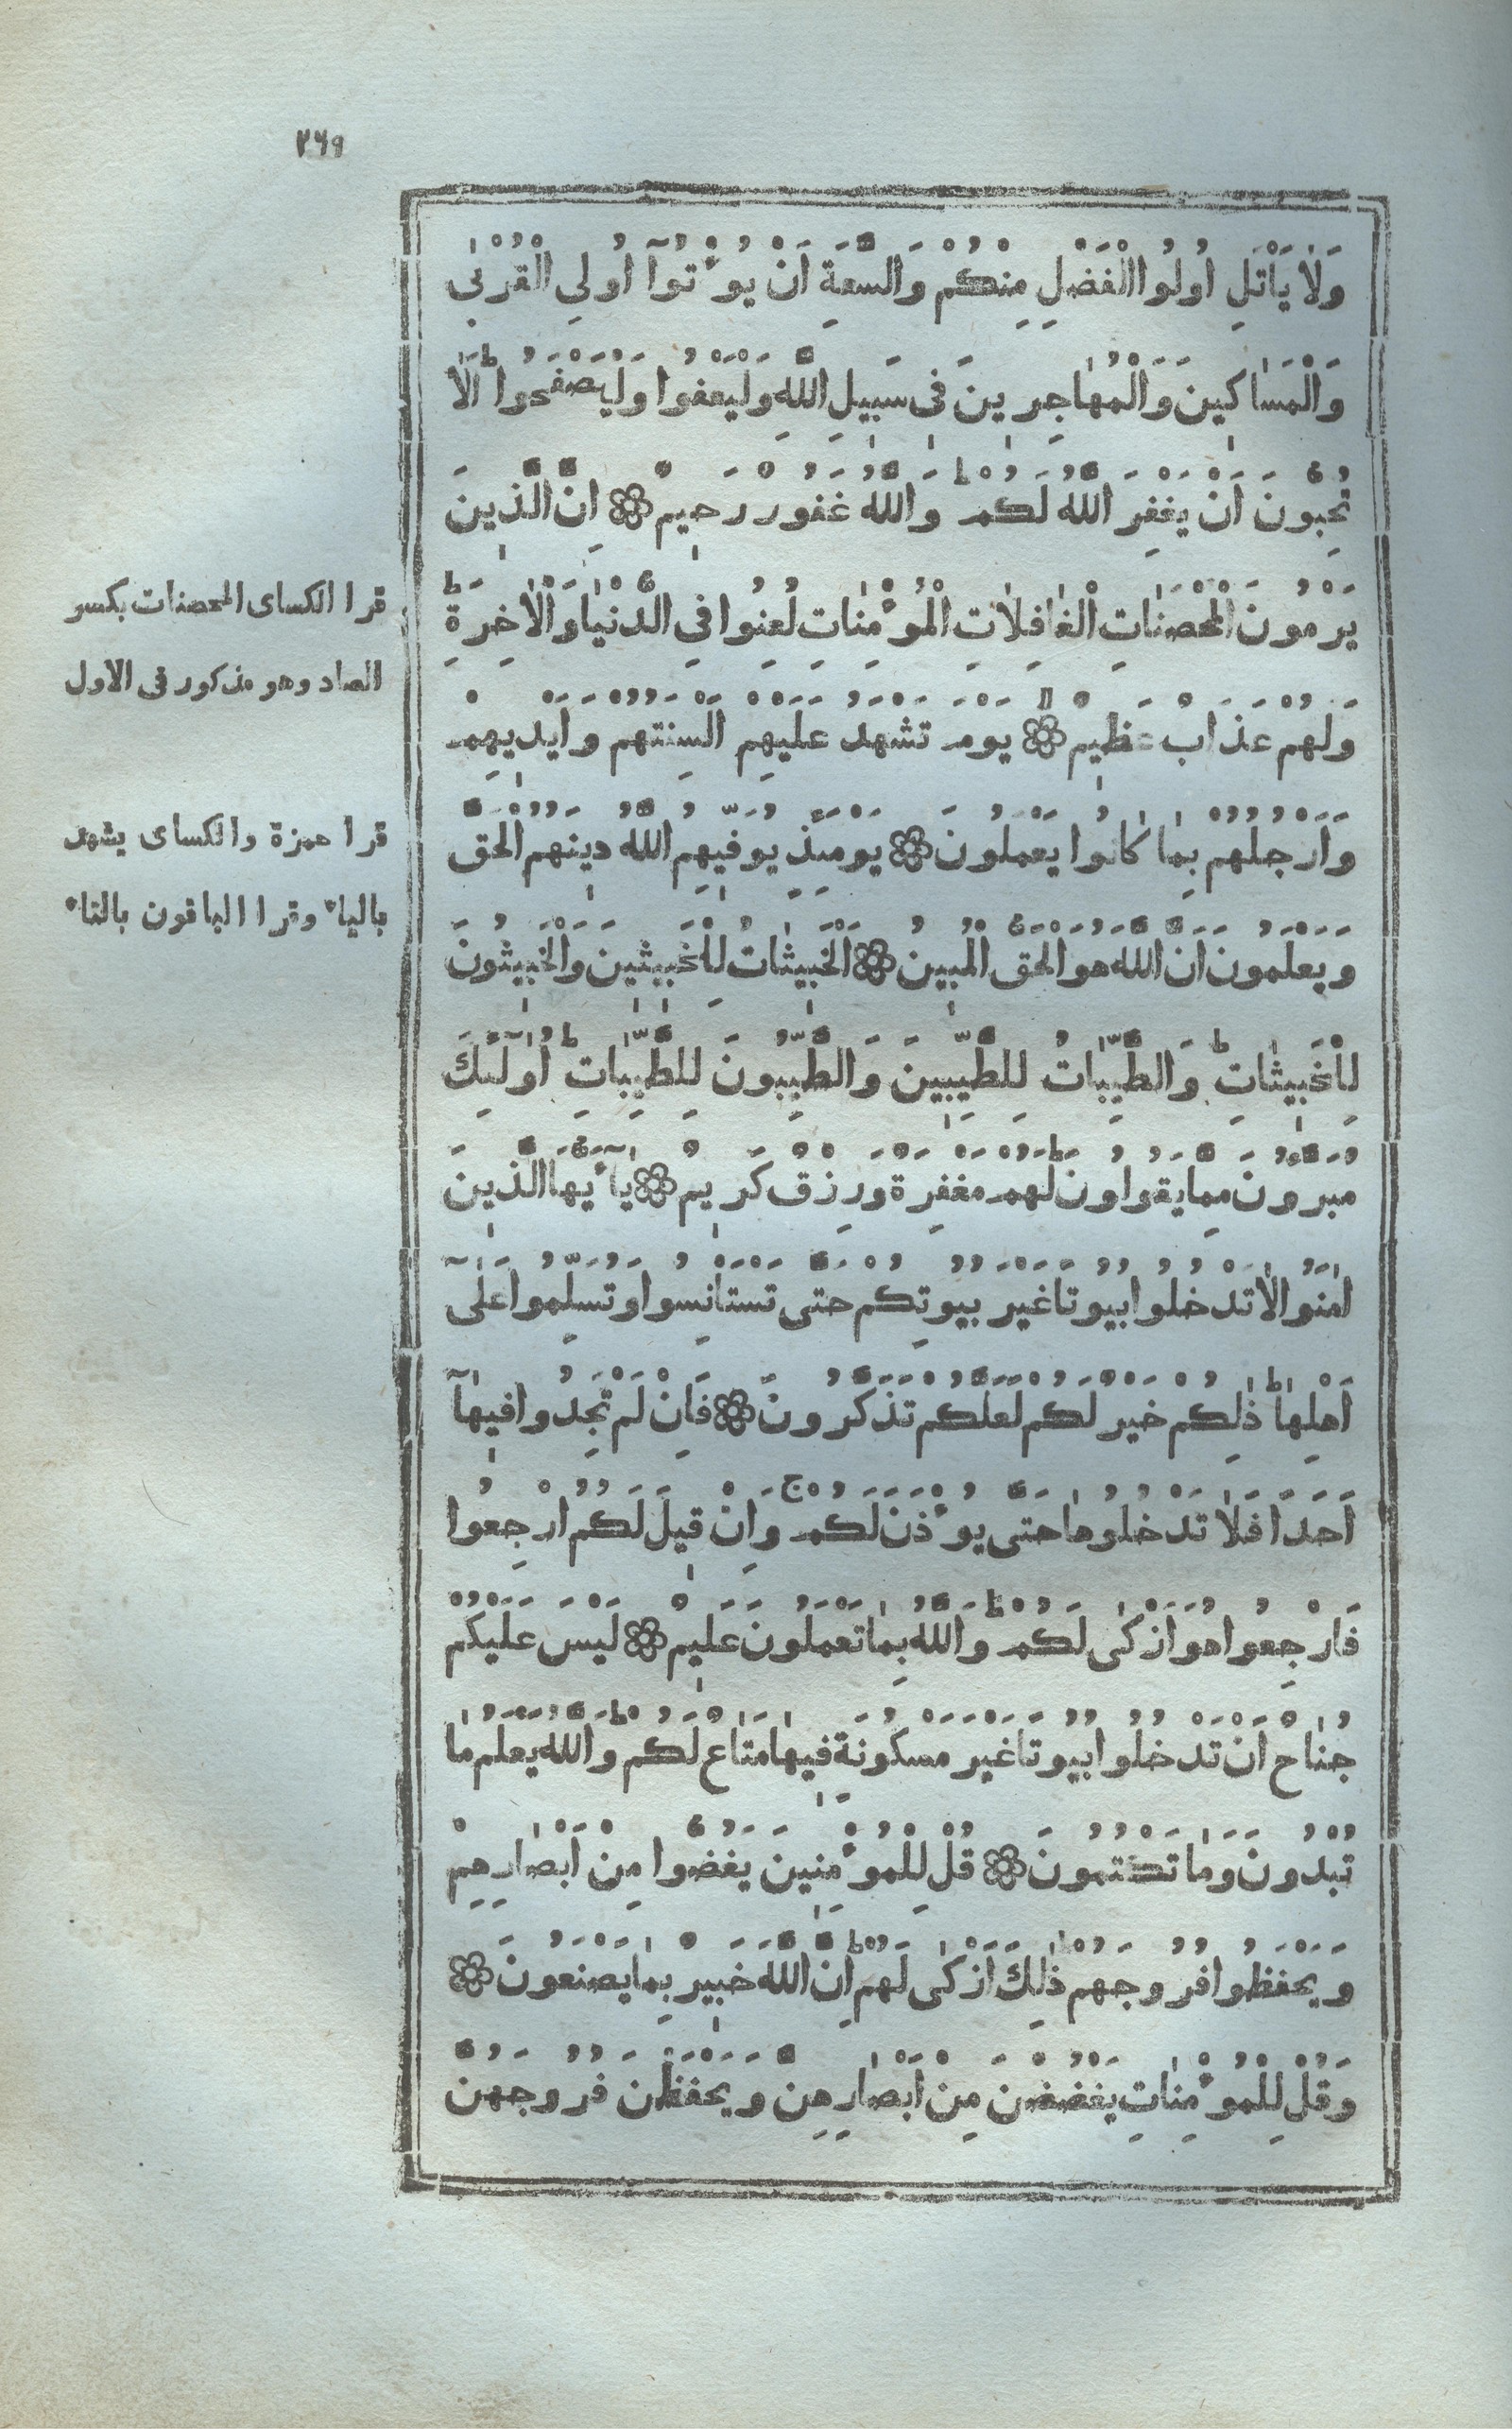 ٢٦٩
وَلٰا يَأْتَلِ اُولُوا الْفَضْلِ مِنْكُمْ وَالسَّعَةِ اَنْ يُؤْتُوآ اُولِى الْقُرْبٰى
وَالْمَسٰاكٖينَ وَالْمُهٰاجِرٖينَ فٖى سَبٖيلِ اللّٰهِ وَلْيَعْفُوا وَلْيَصْفَحُوا ۜ اَلٰا
تُحِبُّونَ اَنْ يَغْفِرَ اللّٰهُ لَكُمْ ۜ وَاللّٰهُ غَفُورٌ رَحٖيمٌ ۞ اِنَّ الَّذٖينَ
يَرْمُونَ الْمُحْصَنَاتِ الْغٰافِلَاتِ الْمُؤْمِنٰاتِ لُعِنُوا فِى الدُّنْيٰا وَالْاٰخِرَةِ ۜ
وَلَهُمْ عَذَابٌ عَظٖيمٌ ۞ يَوْمَ تَشْهَدُ عَلَيْهِمْ اَلْسِنَتُهُمْ وَاَيْدٖيهِمْ
وَاَرْجُلُهُمْ بِمٰا كٰانُوا يَعْمَلُونَ ۞ يَوْمَئِذٍ يُوَفّٖيهِمُ اللّٰهُ دٖينَهُمُ الْحَقَّ
وَيَعْلَمُونَ اَنَّ اللّٰهَ هُوَ الْحَقُّ الْمُبٖينُ ۞ اَلْخَبٖيثٰاتُ لِلْخَبٖيثٖينَ وَالْخَبٖيثُونَ
لِلْخَبٖيثٰاتِ ۜ وَالطَّيِّبٰاتُ لِلطَّيِّبٖينَ وَالطَّيِّبُونَ لِلطَّيِّبٰاتِ ۜ اُولٰٓئِكَ
مُبَرَّؤُنَ مِمَّا يَقُولُونَ ۜ لَهُمْ مَغْفِرَةٌ وَرِزْقٌ كَرٖيمٌ ۞ يٰآ اَيُّهَا الَّذٖينَ
اٰمَنُوا لٰا تَدْخُلُوا بُيُوتًا غَيْرَ بُيُوتِكُمْ حَتّٰى تَسْتَاْنِسُوا وَتُسَلِّمُوا عَلٰىٓ
اَهْلِهٰا ۜ ذٰلِكُمْ خَيْرٌ لَكُمْ لَعَلَّكُمْ تَذَكَّرُونَ ۞ فَاِنْ لَمْ تَجِدُوا فٖيهٰآ
اَحَدًا فَلٰا تَدْخُلُوهٰا حَتّٰى يُؤْذَنَ لَكُمْ ۚ وَاِنْ قٖيلَ لَكُمُ ارْجِعُوا
فَارْجِعُوا هُوَ اَزْكٰى لَكُمْ ۜ وَاللّٰهُ بِمٰا تَعْمَلُونَ عَلٖيمٌ ۞ لَيْسَ عَلَيْكُمْ
جُنٰاحٌ اَنْ تَدْخُلُوا بُيُوتًا غَيْرَ مَسْكُونَةٍ فٖيهٰا مَتٰاعٌ لَكُمْ ۜ وَاللّٰهُ يَعْلَمُ مٰا
تُبْدُونَ وَمٰا تَكْتُمُونَ ۞ قُلْ لِلْمُؤْمِنٖينَ يَغُضُّوا مِنْ اَبْصٰارِهِمْ
وَيَحْفَظُوا فُرُوجَهُمْ ۜ ذٰلِكَ اَزْكٰى لَهُمْ ۜ اِنَّ اللّٰهَ خَبٖيرٌ بِمٰا يَصْنَعُونَ ۞
وَقُلْ لِلْمُؤْمِنٰاتِ يَغْضُضْنَ مِنْ اَبْصٰارِهِنَّ وَيَحْفَظْنَ فُرُوجَهُنَّ
قرا الكساى المحصنات بكسر
الصاد وهو مذكور فى الاول
قرا حمزة والكساى يشهد
بالياء وقرا الباقون بالتاء